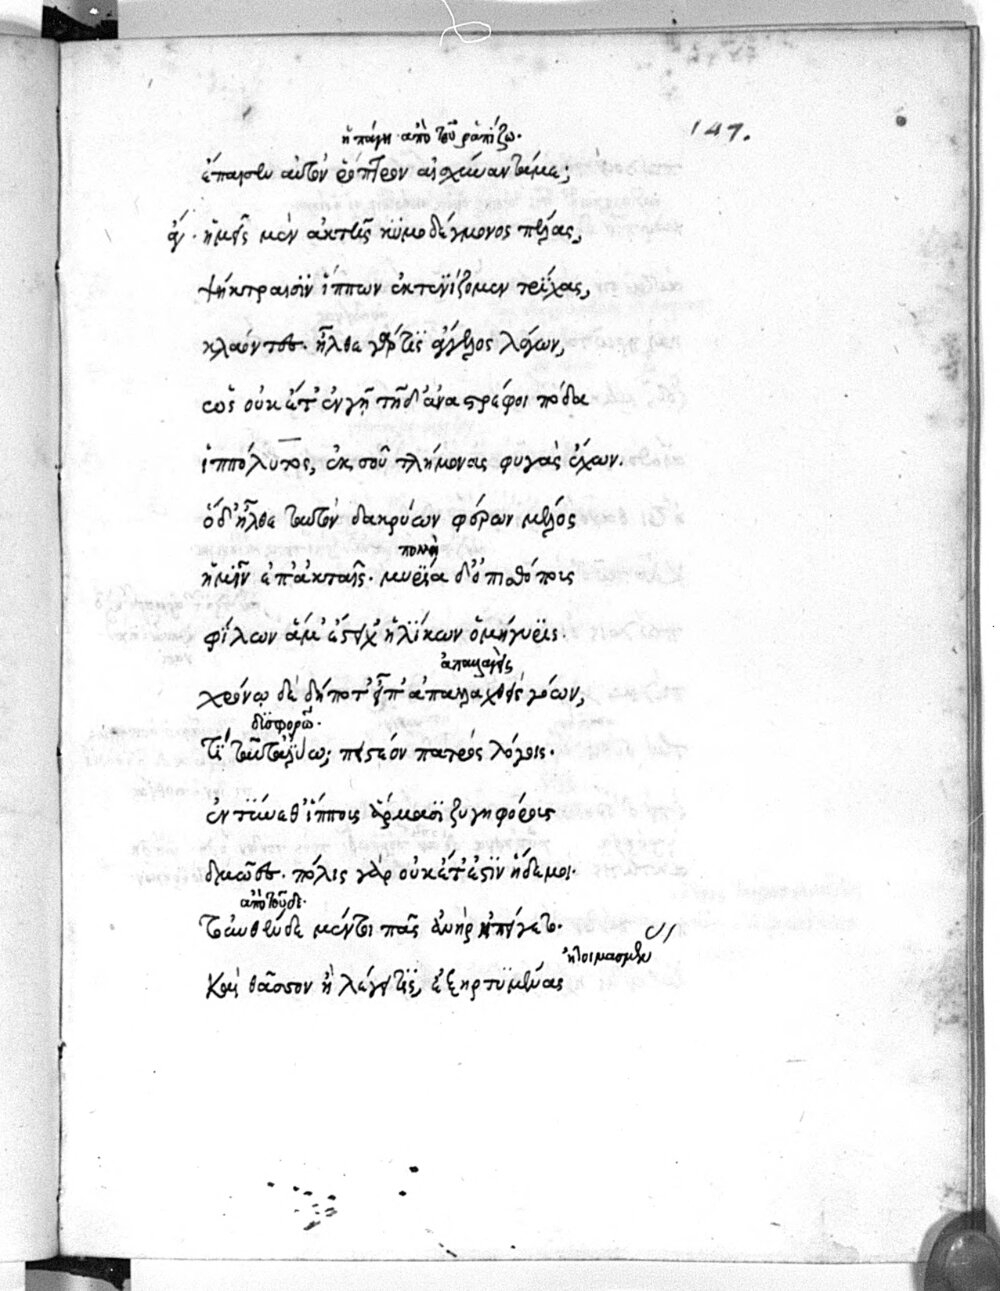 147.
ἡ πάγη ἀπὸ τοῦ ῥαπίζω.
ἔπαισεν αὐτὸν ῥόπτρον αἰσχύναντά με;
ἄγ. ἡμεῖς μὲν ἀκτῆς κυμοδέγμονος πέλας,
ψήκτραισιν ἵππων ἐκτενίζομεν τρίχας,
κλαίοντες. ἦλθε γάρ τις ἄγγελος λέγων,
ὡς οὐκ ἔτ' ἐν γῇ τῇδ' ἀναστρέφοι πόδα
ἱππόλυτος, ἐκ σοῦ τλήμονας φυγὰς ἔχων.
ὅδ' ἦλθε ταυτὸν δακρύων φέρων μέλος
πολλὴ
ἡμῖν ἐπ' ἀκταῖς. μυρία δ' ὀπισθόπους
φίλων ἅμ' ἔστειχ' ἡλίκων ὁμήγυρις.
ἀπαλλαγεὶς
χρόνῳ δὲ δήποτ' εἶπ' ἀπαλλαχθεὶς γόων,
δυσφορῶ.
τί ταῦτ' ἀλύω; πειστέον πατρὸς λόγοις.
ἐντύναθ' ἵππους ἅρμασι ζυγηφόρους
δμῶες. πόλις γὰρ οὐκ ἔτ' ἔστιν ἥδε μοι.
ἀπὸ τοῦδε.
τοὐνθένδε μέντοι πᾶς ἀνὴρ ἠπείγετο.
ἡτοιμασμένας
Καὶ θᾶσσον ἢ λέγει τις, ἐξηρτυμένας